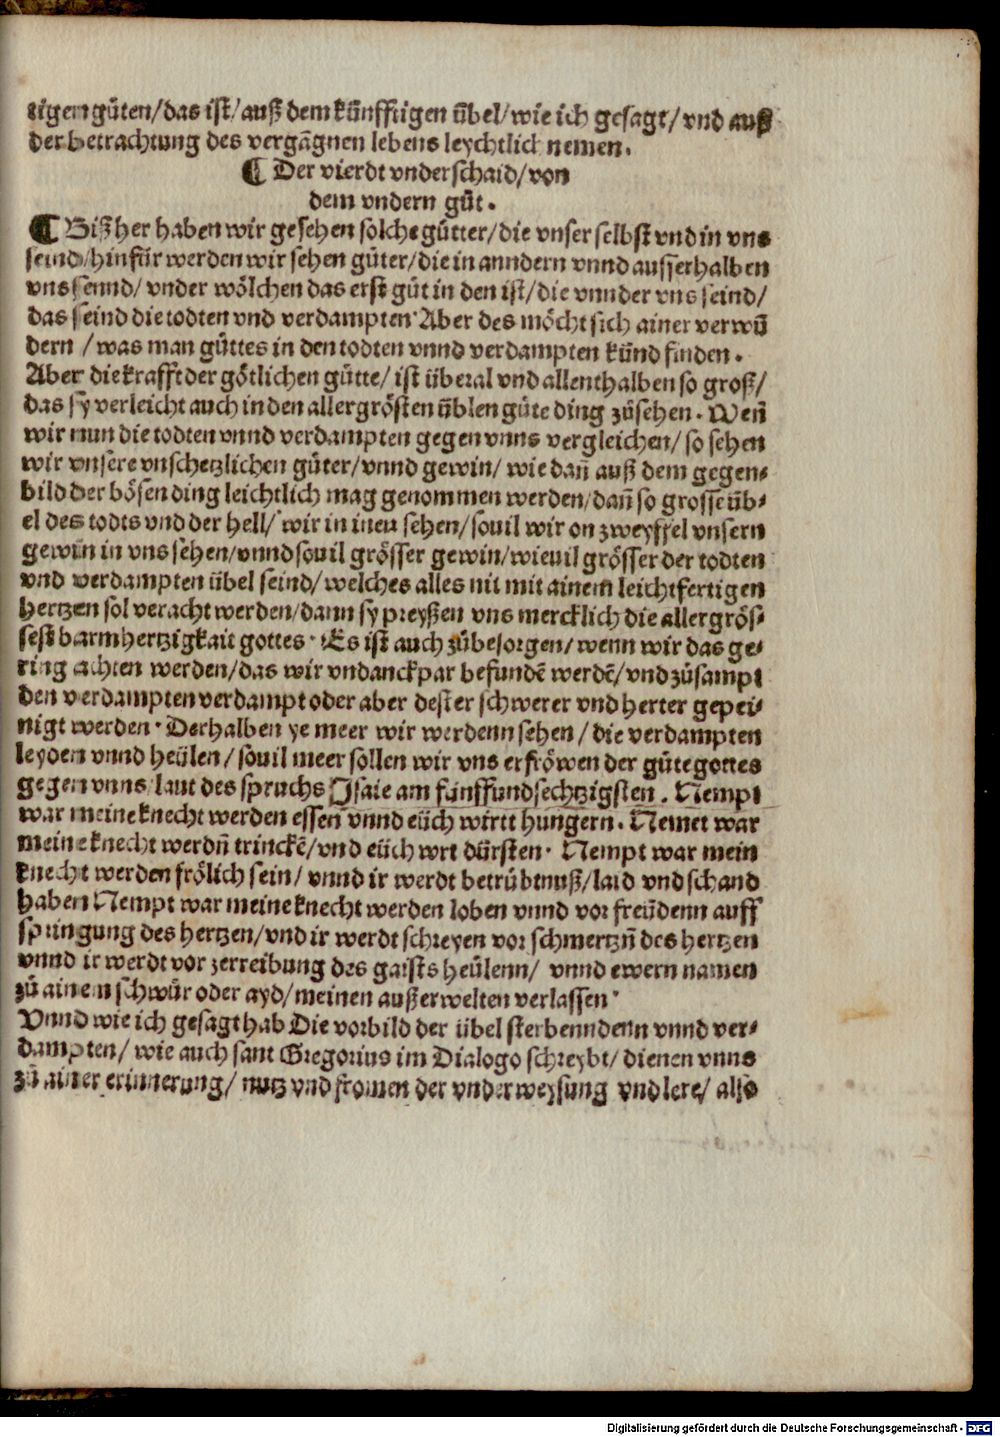 tigen gůten/das ist/auß dem künfftigen übel/wie ich gesagt/vnd auß
der betrachtung des vergāgnen lebens leychtlich nemen.
¶ Der vierdt vnderschaid/von
dem vndern gůt.
¶ Bißher haben wir gesehen solche gütter/die vnser selbst vnd in vns
seind/hinfür werden wir sehen güter/die in anndern vnnd ausserhalben
vns seind/ vnder wölchen das erst gůt in den ist/die vnnder vns seind/
das seind die todten vnd verdampten· Aber des möcht sich ainer verwū
dern /was man gůttes in den todten vnnd verdampten künd finden.
Aber die krafft der götlichen gütte/ ist überal vnd allenthalben so groß/
das sy verleicht auch in den allergrösten üblen gůte ding zůsehen. Weñ
wir nun die todten vnnd verdampten gegen vnns vergleichen/ so sehen
wir vnsere vnschetzlichen güter/vnnd gewin/ wie dañ auß dem gegen-
bild der bösen ding leichtlich mag genommen werden/dañ so grosse üb-
el des todts vnd der hell/ wir in inen sehen/souil wir on zweyffel vnsern
gewin in vns sehen/vnnd souil grösser gewin/wieuil grösser der todten
vnd verdampten übel seind/ welches alles nit mit ainem leichtfertigen
hertzen sol veracht werden/dann sy preyßen vns mercklich die allergrös-
sest barmhertzigkait gottes· Es ist auch zůbesorgen/wenn wir das ge-
ring achten werden/das wir vndanckpar befundē werdē/vnd zůsampt
den verdampten verdampt oder aber dester schwerer vnd herter gepei-
nigt werden· Derhalben ye meer wir werdenn sehen/die verdampten
leyden vnnd heülen/souil meer sollen wir vns erfröwen der güte gottes
gegen vnns/laut des spruchs Isaie am fünffundsechtzigsten. Nempt
war meine knecht werden essen vnnd eüch wirtt hungern. Nemet war
meine knecht werdñ trinckē/vnd eüch wrt dürsten· Nempt war mein
knecht werden frölich sein/ vnnd ir werdt betrübtnuß/laid vnd schand
haben Nempt war meine knecht werden loben vnnd vor freüdenn auff
springung des hertzen/vnd ir werdt schreyen vor schmertzñ des hertzen
vnnd ir werdt vor zerreibung des gaists heülenn/ vnnd ewern namen
zů ainem schwůr oder ayd/meinen außerwelten verlassen·
Vnnd wie ich gesagt hab Die vorbild der übel sterbenndenn vnnd ver-
dampten/ wie auch sant Gregorius im Dialogo schreybt/ dienen vnns
zů ainer erinnerung/ nutz vnd fromen der vnderweysung vnd lere/ also
Digitalisierung gefördert durch die Deutsche Forschungsgemeinschaft - DFG